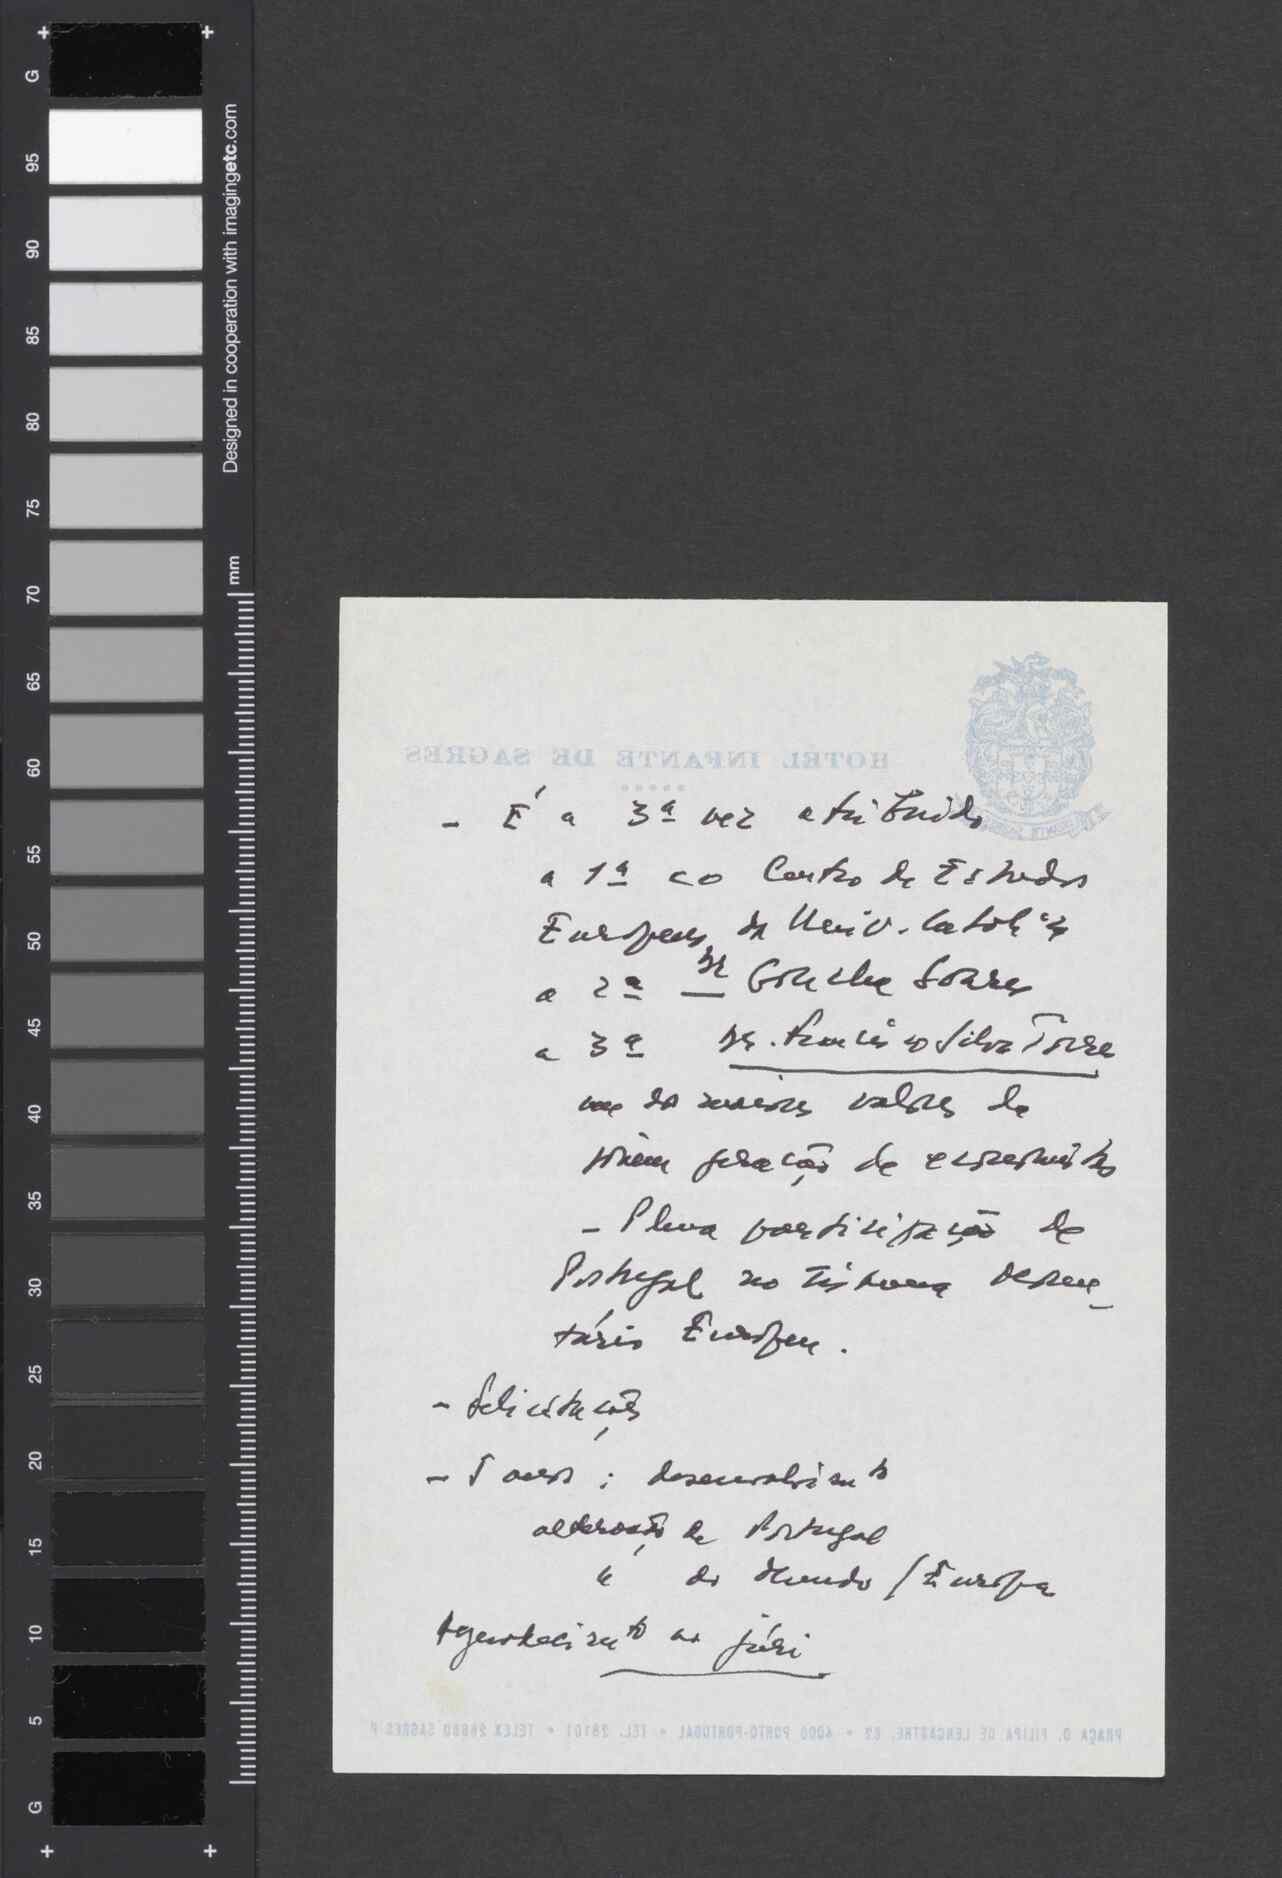 G
95
90
85
80
75
70
65
60
55
50
45
40
35
30
25
20
15
10
5
G
Designed in cooperation with imagingetc.com
mm
HOTEL INFANTE DE SAGRES
- É a 3ª vez atribuído
a 1ª ao Centro de Estudos
Europeus da Univ. Católica
a 2ª Dr Goucha Soares
a 3ª Dr. Francisco Silva Torres
um dos maiores valores da
jovem geração de economistas
- Plena participação de
Portugal no Sistema Mone-
tário Europeu.
- Felicitações
- 5 anos : desenvolvimto
alteração de Portugal
" do Mundo / Europa
Agradecimto ao júri
PRAÇA D. FILIPA DE LENCASTRE, 62 • 4000 PORTO-PORTUGAL • TEL. 28101 • TELEX 26880 SAGRES P